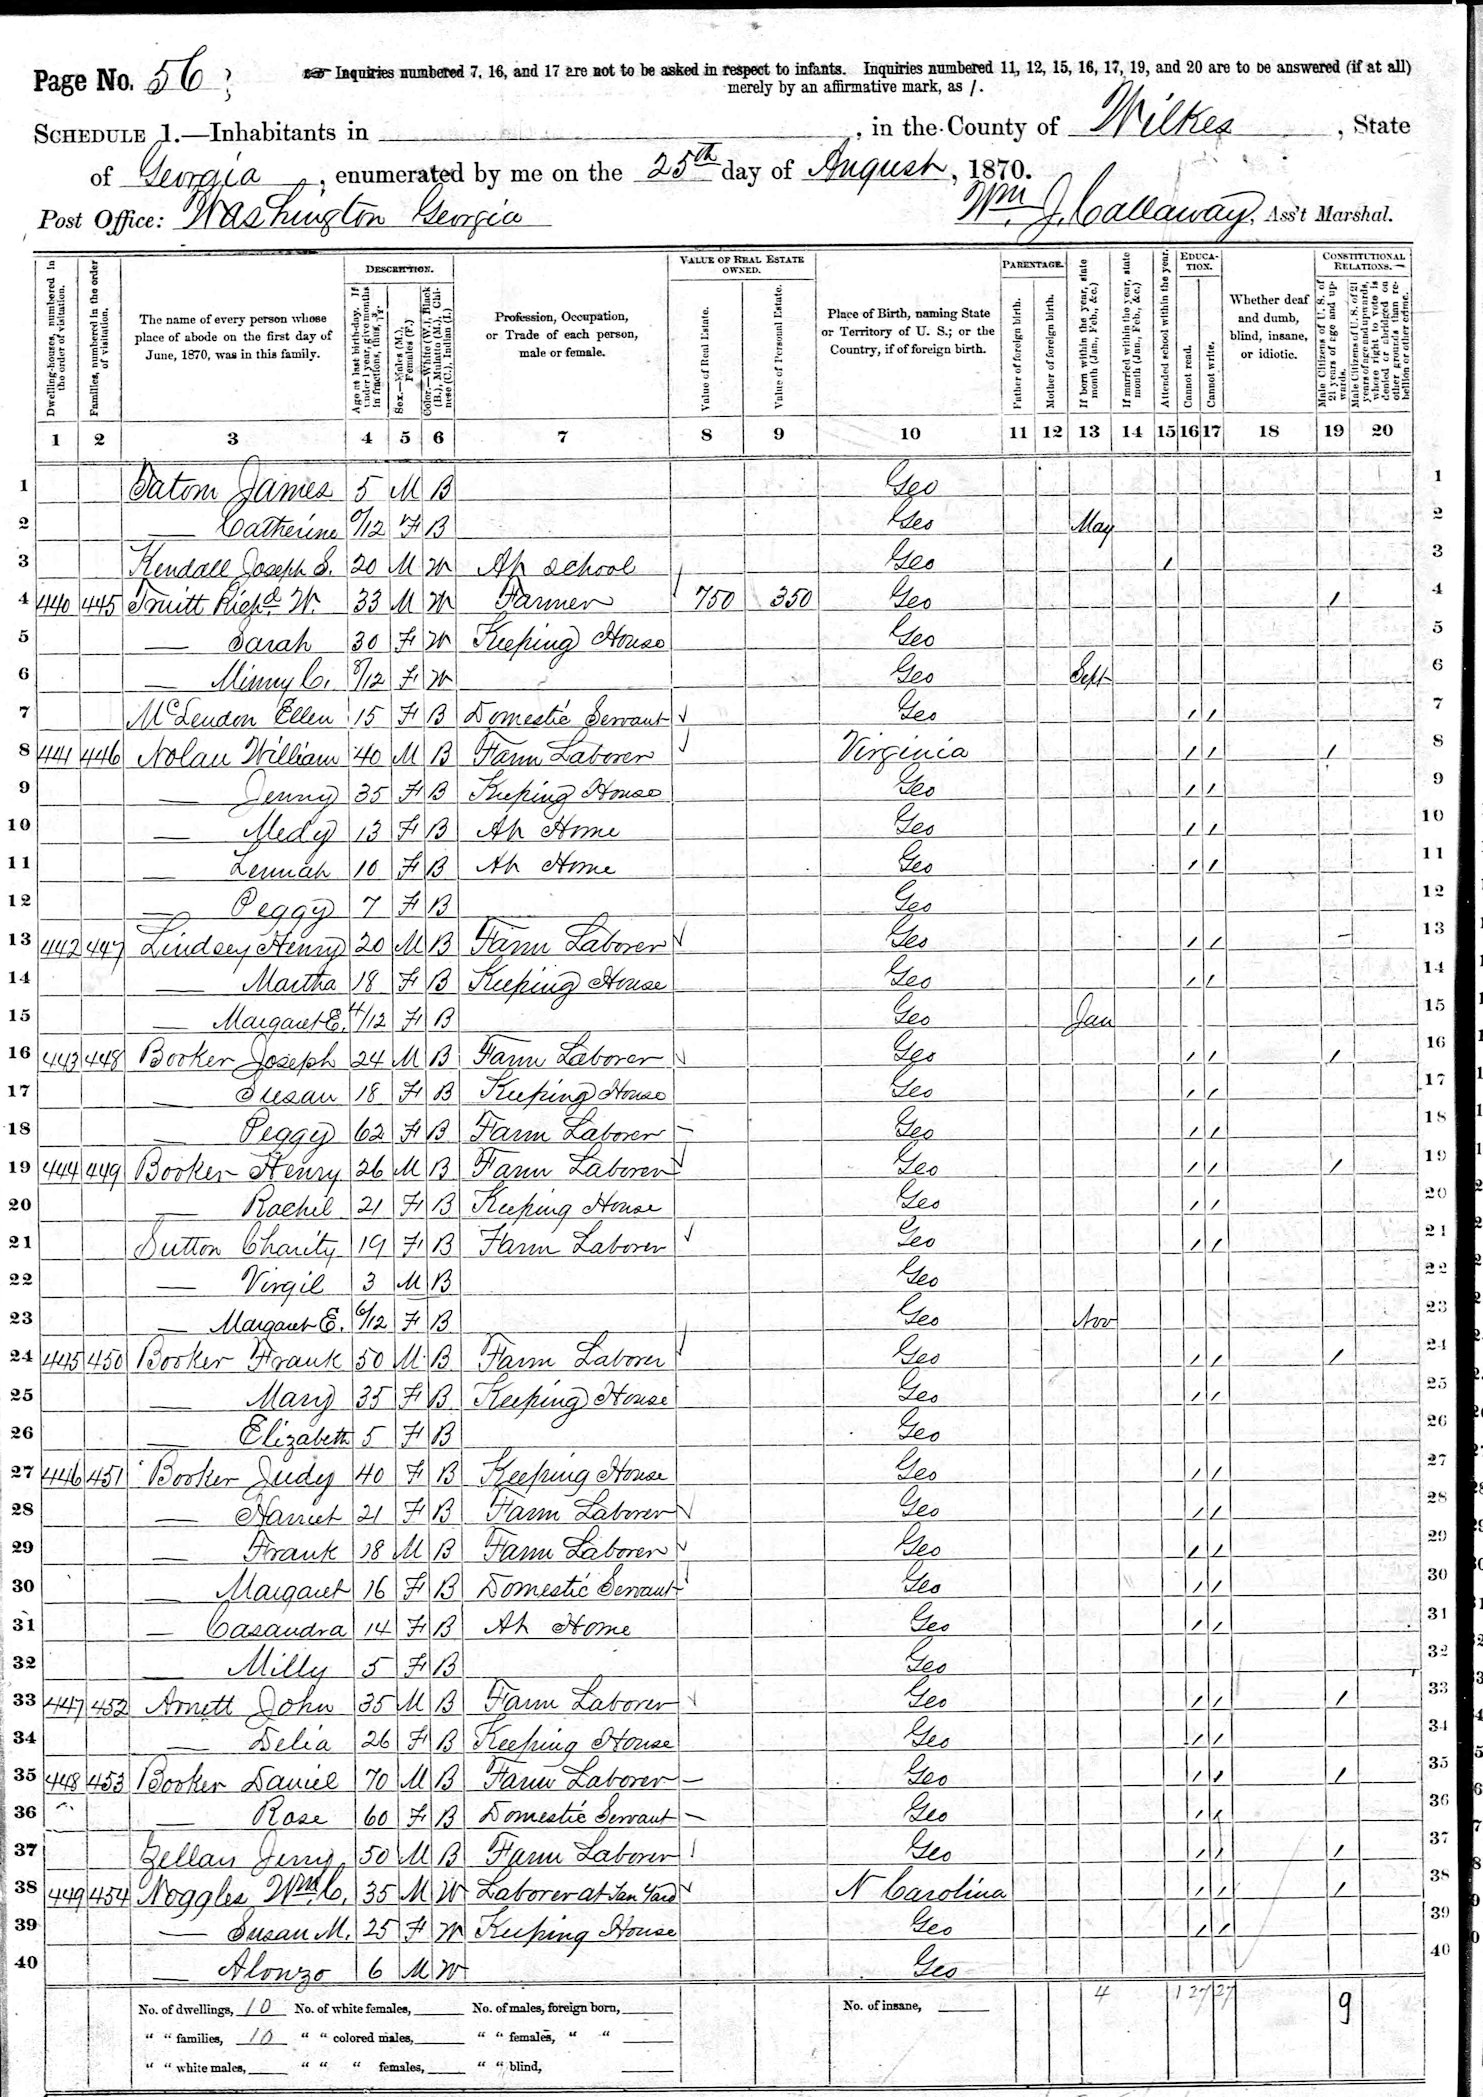 Page No. 56
Inquiries numbered 7, 16, and 17 are not to be asked in respect to infants. Inquiries numbered 11, 12, 15, 16, 17, 19, and 20 are to be answered (if at all)
merely by an affirmative mark, as /.
SCHEDULE 1.—Inhabitants in , in the County of Wilkes , State
of Georgia , enumerated by me on the 25th day of August , 1870.
Post Office: Washington Georgia Wm. J. Callaway, Ass't Marshal.
Dwelling-houses, numbered in the order of visitation.
Families, numbered in the order of visitation.
The name of every person whose place of abode on the first day of June, 1870, was in this family.
DESCRIPTION.
Age at last birth-day. If under 1 year, give months in fractions, thus, 3/12.
Sex.—Males (M.), Females (F.)
Color.—White (W.), Black (B.), Mulatto (M.), Chinese (C.), Indian (I.)
Profession, Occupation, or Trade of each person, male or female.
VALUE OF REAL ESTATE OWNED.
Value of Real Estate.
Value of Personal Estate.
Place of Birth, naming State or Territory of U. S.; or the Country, if of foreign birth.
PARENTAGE.
Father of foreign birth.
Mother of foreign birth.
If born within the year, state month (Jan., Feb., &c.)
If married within the year, state month (Jan., Feb., &c.)
Attended school within the year.
EDUCATION.
Cannot read.
Cannot write.
Whether deaf and dumb, blind, insane, or idiotic.
CONSTITUTIONAL RELATIONS.
Male Citizens of U. S. of 21 years of age and upwards.
Male Citizens of U. S. of 21 years of age and upwards, whose right to vote is denied or abridged on other grounds than rebellion or other crime.
1 2 3 4 5 6 7 8 9 10 11 12 13 14 15 16 17 18 19 20
1 James 5 M B Geo 1
2 — Catherine /12 F B Geo May 2
3 Kendall Joseph S. 20 M W At school Geo / 3
4 440 445 Truitt Richd W. 33 M W Farmer 750 350 Geo / 4
5 — Sarah 30 F W Keeping House Geo 5
6 — Minny C. 8/12 F W Geo Sept 6
7 McLendon Ellen 15 F B Domestic Servant Geo / / 7
8 441 446 Nolan William 40 M B Farm Laborer Virginia / / / 8
9 — Jenny 35 F B Keeping House Geo / / 9
10 — Medy 13 F B At Home Geo / / 10
11 — 10 F B At Home Geo / / 11
12 — Peggy 7 F B Geo 12
13 442 447 Lindsey Henry 20 M B Farm Laborer Geo / / - 13
14 — Martha 18 F B Keeping House Geo / / 14
15 — Margaret E. 4/12 F B Geo Jan 15
16 443 448 Booker Joseph 24 M B Farm Laborer Geo / / / 16
17 — Susan 18 F B Keeping House Geo / / 17
18 — Peggy 62 F B Farm Laborer Geo / / 18
19 444 449 Booker Henry 26 M B Farm Laborer Geo / / / 19
20 — Rachel 21 F B Keeping House Geo / / 20
21 Sutton Charity 19 F B Farm Laborer Geo / / 21
22 — Virgil 3 M B Geo 22
23 — Margaret E. 6/12 F B Geo Nov 23
24 445 450 Booker Frank 50 M B Farm Laborer Geo / / / 24
25 — Mary 35 F B Keeping House Geo / / 25
26 — Elizabeth 5 F B Geo 26
27 446 451 Booker Judy 40 F B Keeping House Geo / / 27
28 — Harriet 21 F B Farm Laborer Geo / / 28
29 — Frank 18 M B Farm Laborer Geo / / 29
30 — Margaret 16 F B Domestic Servant Geo / / 30
31 — Casandra 14 F B At Home Geo / / 31
32 — Milly 5 F B Geo 32
33 447 452 Arnett John 35 M B Farm Laborer Geo / / / 33
34 — Delia 26 F B Keeping House Geo / / 34
35 448 453 Booker Daniel 70 M B Farm Laborer Geo / / / 35
36 — Rose 60 F B Domestic Servant Geo / / 36
37 Zellars Jerry 50 M B Farm Laborer Geo / / / 37
38 449 454 Noggles Wm C. 35 M W Laborer at Tan Yard N Carolina / / / 38
39 — Susan M. 25 F W Keeping House Geo / / 39
40 — Alonzo 6 M W Geo 40
No. of dwellings, 10 No. of white females, No. of males, foreign born, No. of insane, 4 1 27 27 9
" " families, 10 " " colored males, " " females, " "
" " white males, " " " females, " " blind,